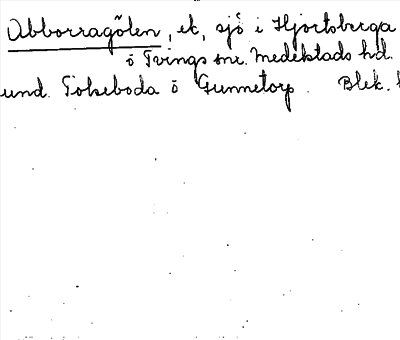 Abborragölen, ek, sjö i Hjortsberga
ö Tvings snr. Medelstads hd.
und. Tolseboda ö Gunnetorp. Blek.